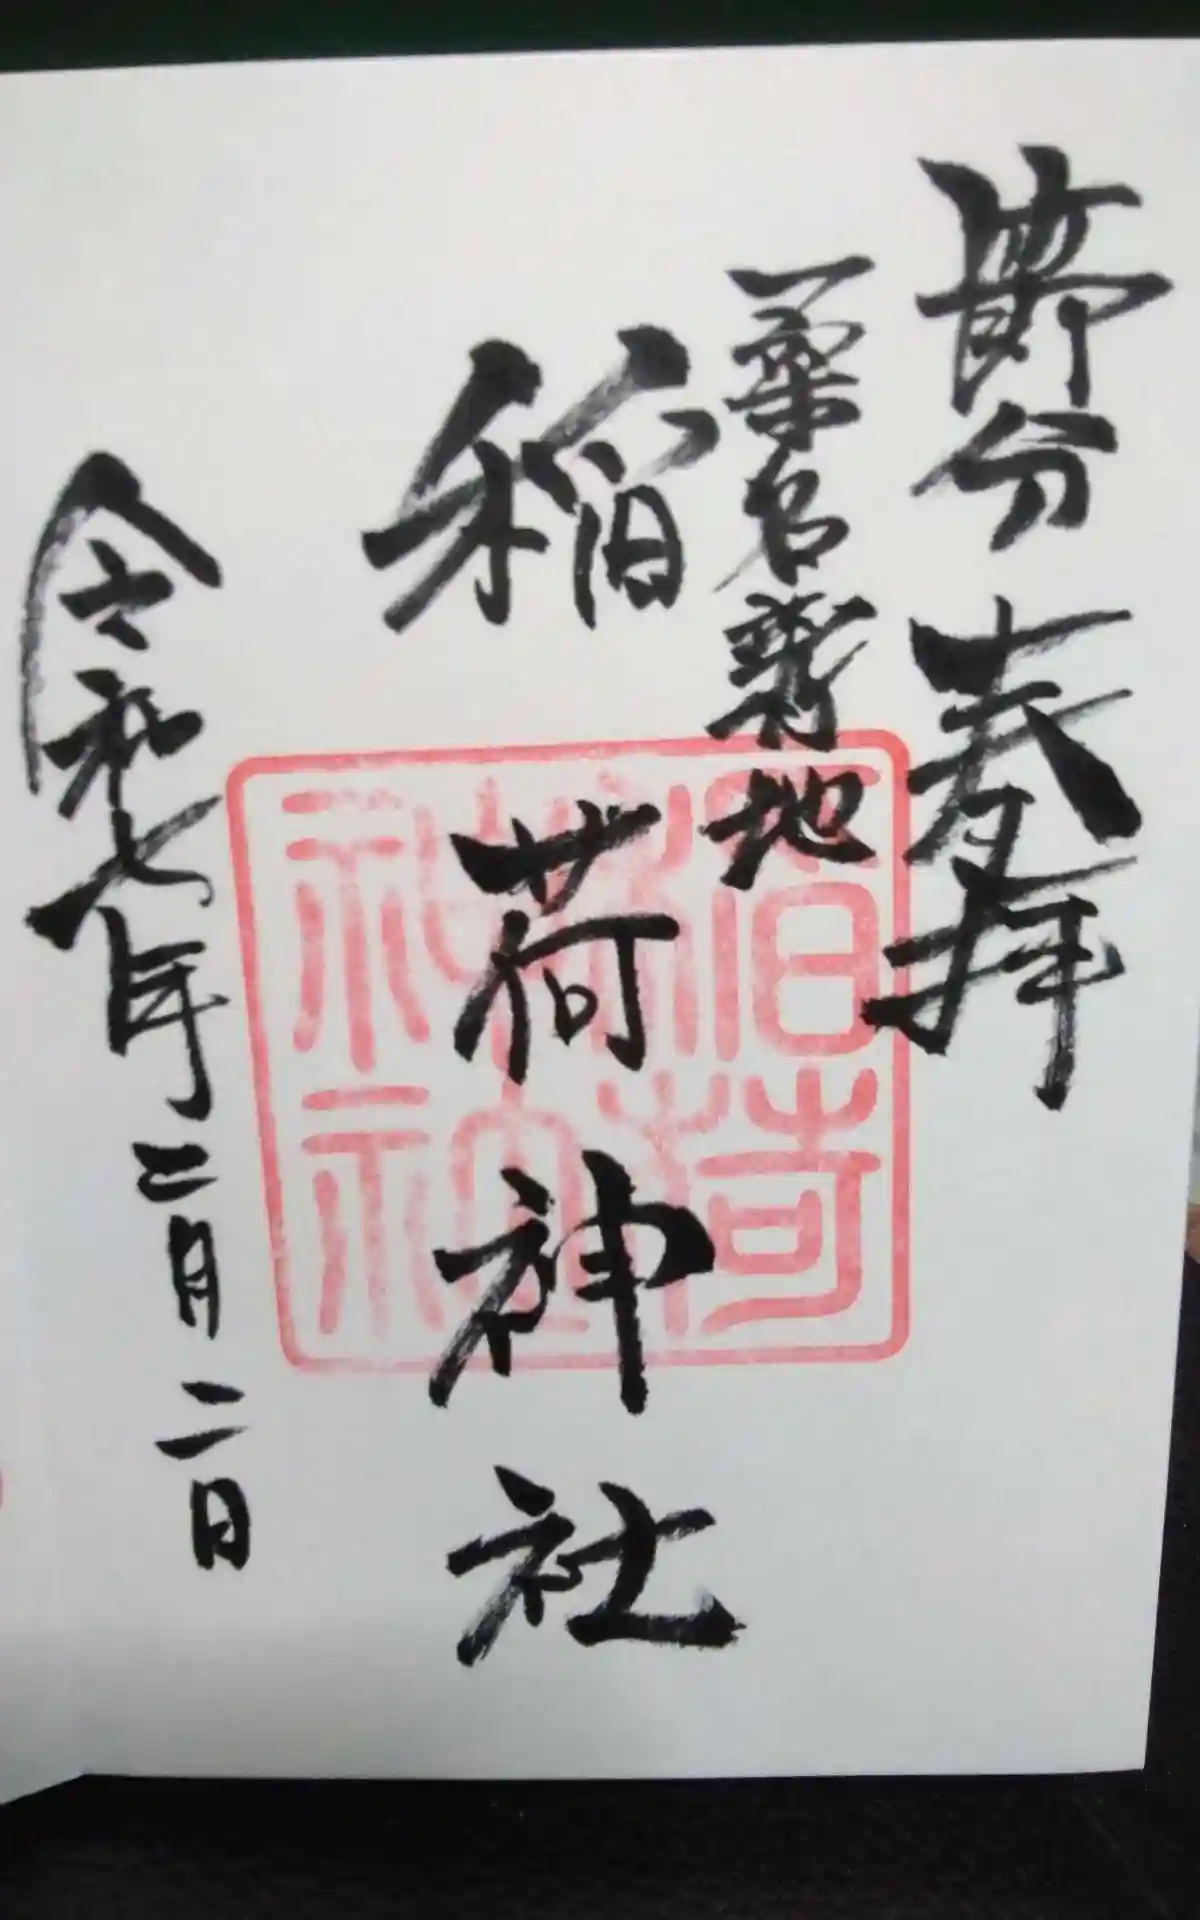 節分 奉拝
桑名新地
稲荷神社
令和七年二月二日
稲荷
神社